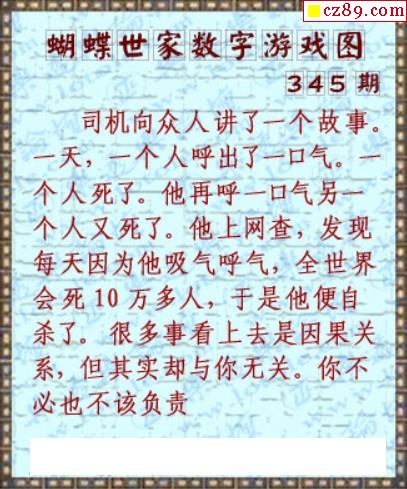 cz89.com
蝴蝶世家数字游戏图
345期
司机向众人讲了一个故事。
一天，一个人呼出了一口气。一
个人死了。他再呼一口气另一
个人又死了。他上网查，发现
每天因为他吸气呼气，全世界
会死10万多人，于是他便自
杀了。很多事看上去是因果关
系，但其实却与你无关。你不
必也不该负责